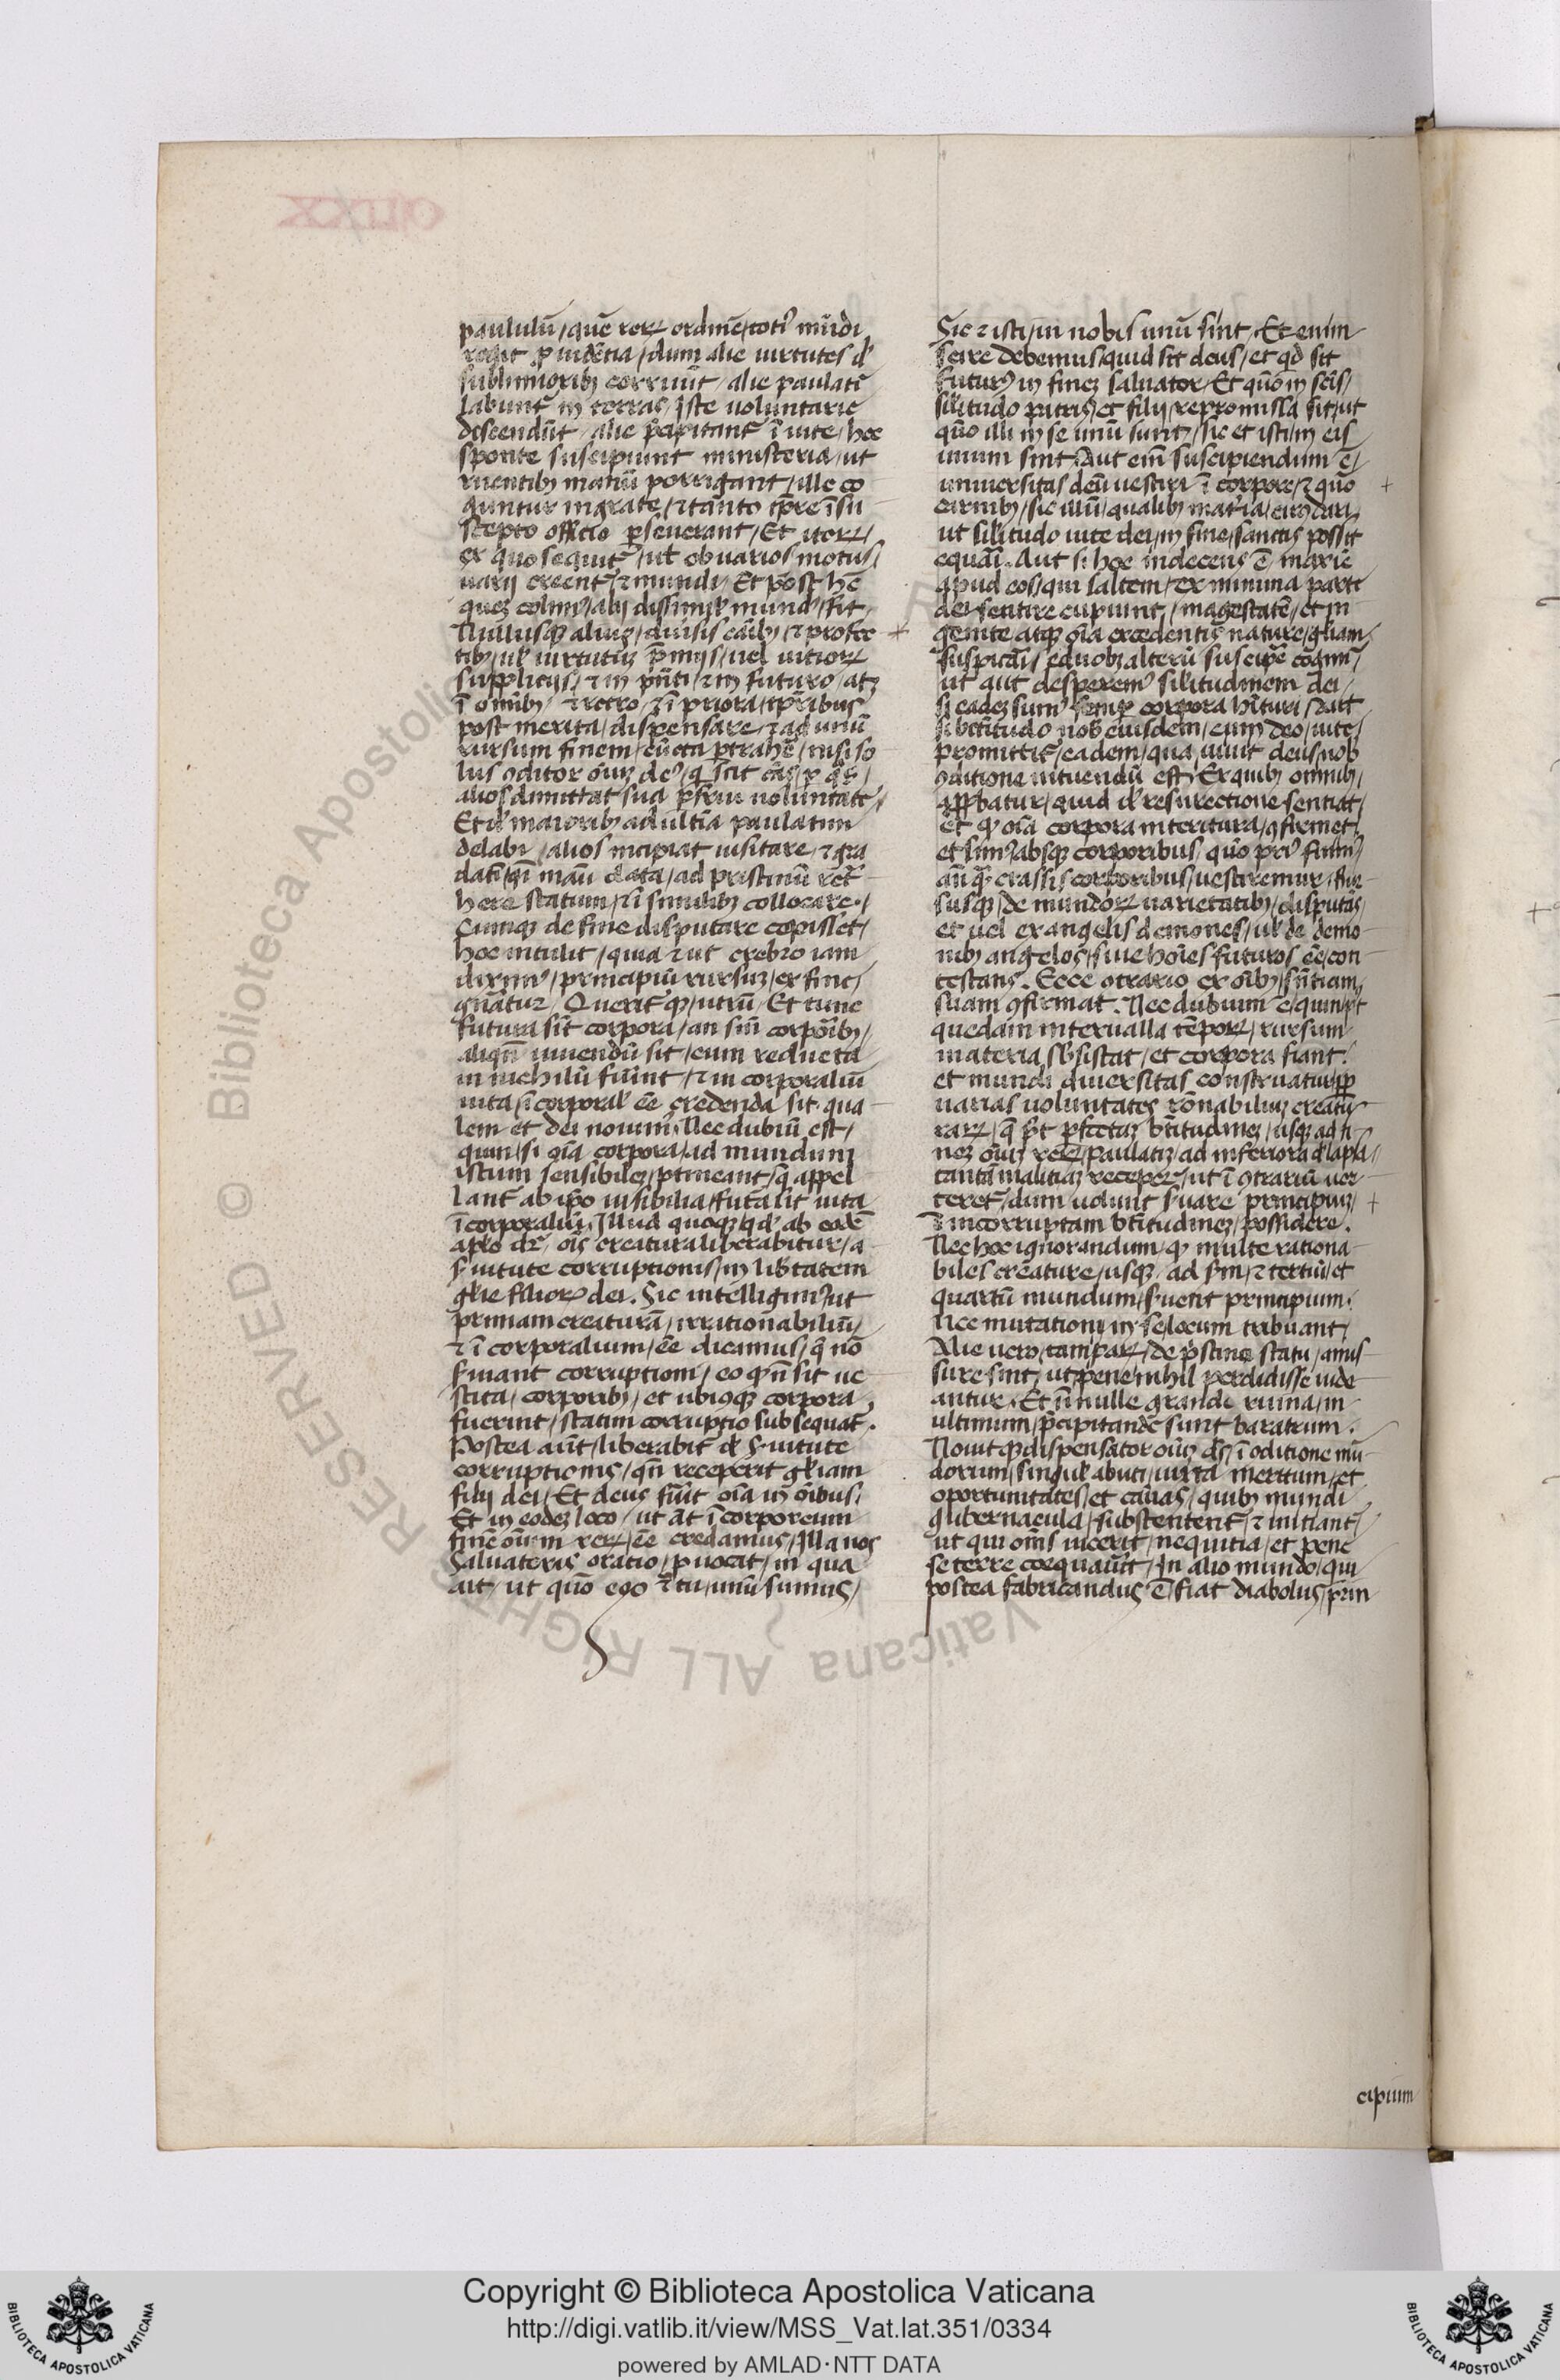 paululū / quē reꝝ ordinē / toti᾽ mūdi
regit ꝓuidētia / dum alie uirtutes d᾽
sublimiorib; corruūt / alie paulatī
labunt᾽ in terras / Iste uoluntarie
descendūt / alie p̄cipitant᾽ ī uite / hec
sponte suscipiunt ministeria / ut
ruentib; manū porrigant / ille co
guntur ingrate / ⁊ tāto tp̄re ī su
scepto officio ꝑseuerant / Et iteꝝ /
ex quo sequit᾽ / ut ob uarios motus /
uarij creent᾽ / ⁊ mundi / Et post hēc
quez colim᾽ / alij dissimil᾽ mund᾽ / fit /
Nullusqꝫ alius / diuisis cāib; / ⁊ profec
tib; / ul᾽ uirtutuz p̄mijs / uel uitioꝝ
supplicijs / ⁊ in pn̄ti / ⁊ in futuro / atqꝫ
ī omīb; / ⁊ retro / ⁊ ī priora / tp̄ribus
post merita / dispensare / ⁊ ad unū
rursum finem / cūcta ꝑtrahē / nisi so
lus ꝯditor oīuz de᾽ / q̇ scit cās / ꝑ q̄s /
alios dimittat sua ꝑfrui uoluntate /
Et d᾽ maiorib; ad ultīa paulatim
delabi / alios incipiat uisitare / ⁊ gra
datī / q̄i manū data / ad pristinū ret᾽
here statum / ⁊ ī sublimib; collocare . /
Cumqꝫ de fine disputare cepisset /
hoc intulit / quia ⁊ ut crebro iam
dixim᾽ / principiū rursuz / ex fine /
gn̄atur / Querit᾽ qꝫ / utrū / Et tunc
futura sīt corpora / an sīn corporib; /
aliqn̄ uiuendū sit / cum reducta
in nichilū fuīnt / ⁊ in corporaliū
uita / īcorporal᾽ ēe credenda sit · qua
lem et dei nouim᾽ / Nec dubiū est /
quin / si oīa corpora / ad mundum
istum sensibilez / ꝑtineant / q̄ appel
lant᾽ ab ip̄o uisibilia / futa sit uita
īcorporaliū / Illud quoqꝫ / qd᾽ ab eodē
aplo dr̄ / oīs creatura liberabitur / a
s᾽uitute corruptionis / in lib᾽tatem
gl᾽ie filioꝝ dei . Sic intelligim᾽ / ut
primam creaturā / irritionabiliū /
⁊ ī corporalium / ēe dicamus / q̄ nō
s᾽uiant corruptioni / eo ꝙ n̄ sit ue
stita / corporib; / et ubicūqꝫ corpora
fuerint / statim corruptio subsequat᾽ .
Postea aūt / liberabit᾽ d᾽ s᾽uitute
corruptionis / qn̄ receperit gl᾽iam
filij dei / Et deus fu᾽it oīa in oībus /
Et in eodez loco / ut āt ī corporeum
finē oīum reꝝ / ēe credamus / Illa nos
Saluatoris oratio / ꝓuocat / in qua
ait / ut quō ego ⁊ tu / unū sumus /
Sic ⁊ isti / in nobis unū sint / Et enim
scire debemus / quid sit deus / et qd᾽ sit
futur᾽ in finez saluator / Et quō in scīs /
sil᾽itudo patris / et filij / repromissa sit / ut
quō illi in se unū sunt / sic et isti / in eis
unum sint / Aut eīm suscipiendum ē /
uniuersitas deū uestiri ī corpore / ⁊ quō
carnib; / sic illū / qualib; mat᾽ia / circūdari
ut sil᾽itudo uite dei / in fine / sanctis possit
equāi . Aut si hoc indecens ē / maxīe
apud eos / qui saltem / ex minima parte
dei sentire cupiunt / magestatē / et in
genite / atqꝫ oīa excedentis nature / gl᾽iam
suspicāi / e duob; alterū suscipe cogim᾽
ut aut desperem᾽ sil᾽itudinem dei /
si eadez sum᾽ semꝑ corpora h̄ituri / Aut
si bt̄itudo nob᾽ eiusdem / cum deo / uite
promittit᾽ / eadem / qua uiuit deus / nob᾽
ꝯditione uiuendū est / Ex quib; omnib;
apꝓbatur / quid d᾽ resurectione sentiat /
et ꝙ oīa corpora interitura / ꝯfirmet /
et sim᾽ absqꝫ corporibus / quō pri᾽ fuim᾽
ān qꝫ crassis corporibus / uestiremur / Rur
susqꝫ / de mundoꝝ uarietatib; / disputās
et uel ex angelis demones / ul᾽ de demo
nib; angelos / siue hoīes futuros ēe / con
testans . Ecce ꝯtrario ex oīb; / sn̄tiam
suam ꝯfirmat . Nec dubium ē / quin post
quedam interualla tēpoꝝ / rursum
materia sb̄sistat / et corpora fiant /
et mundi diuersitas construatur / ꝓp
uarias uoluntates rōnabiliuz creatu
raꝝ / q̄ pt ꝑfectaz bt̄itudinez / usqꝫ ad fi
nez oīuz reꝝ / Paulatiz / ad inferiora dl᾽apsa /
tantā malitiaz recepeꝝ / ut ī ꝯtrariū uer
teret᾽ / dum nolunt s᾽uare principiuz /
⁊ incorruptam bt̄itudinez / possidere .
Nec hoc ignorandum / ꝙ multe rationa
biles creature / usqꝫ ad sm̄ / ⁊ tertiū / et
quartū mundum / s᾽uent principium .
Nec mutationi / in se / locum tribuant /
Alie uero / tam paꝝ / de p̄stino statu / amis
sure sint / ut pene nihil perdidisse uide
antur . Et n̄nulle grandi ruina / in
ultimum / p̄cipitande sunt baratrum .
Nouit qꝫ dispensator oīuz ds̄ / ī ꝯditione mū
dorum / singul᾽ abuti / iuxta meritum / et
oportunitates / et cāuas / quib; mundi
gubernacula / substentent᾽ / ⁊ initiant᾽
ut qui oms̄ uicerit / nequitia / et pene
se terre coequau᾽it / In alio mundo / qui
postea fabricandus ē / fiat diabolus / prin
cipium
Copyright © Biblioteca Apostolica Vaticana
http://digi.vatlib.it/view/MSS_Vat.lat.351/0334
powered by AMLAD·NTT DATA
BIBLIOTECA APOSTOLICA VATICANA
BIBLIOTECA APOSTOLICA VATICANA
© Biblioteca Apostolica Vaticana ALL RIGHTS RESERVED